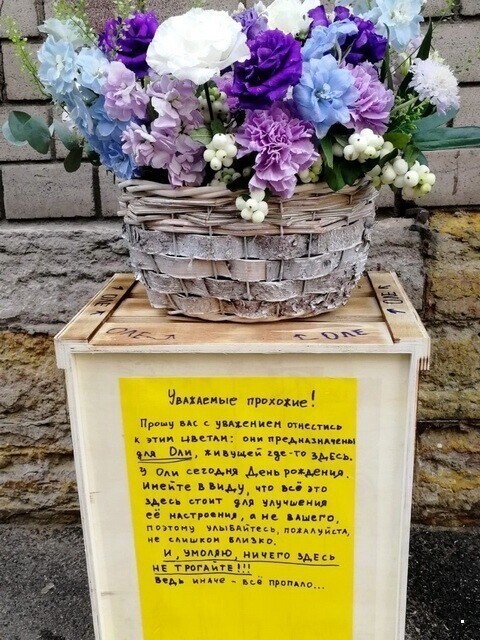 ОЛЕ
ОЛЕ →
← ОЛЕ
Уважаемые прохожие!
Прошу вас с уважением отнестись
к этим цветам: они предназначены
для Оли, живущей где-то здесь.
У Оли сегодня День рождения.
Имейте в виду, что всё это
здесь стоит для улучшения
её настроения, а не вашего,
поэтому улыбайтесь, пожалуйста,
не слишком близко.
И, умоляю, ничего здесь
не трогайте!!!
Ведь иначе - всё пропало...